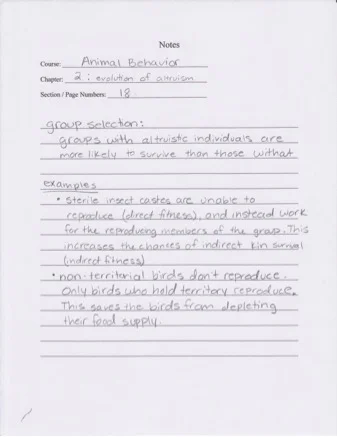 Notes
Course: Animal Behavior
Chapter: 2: evolution of altruism
Section / Page Numbers: 18
group selection:
groups with altruistic individuals are
more likely to survive than those withat
examples
• sterile insect castes are unable to
reproduce (direct fitness), and instead work
for the reproducing members of the group. This
increases the chances of indirect kin survial
(indirect fitness)
• non-territorial birds don't reproduce.
Only birds who hold territory reproduce.
This saves the birds from depleting
their food supply.